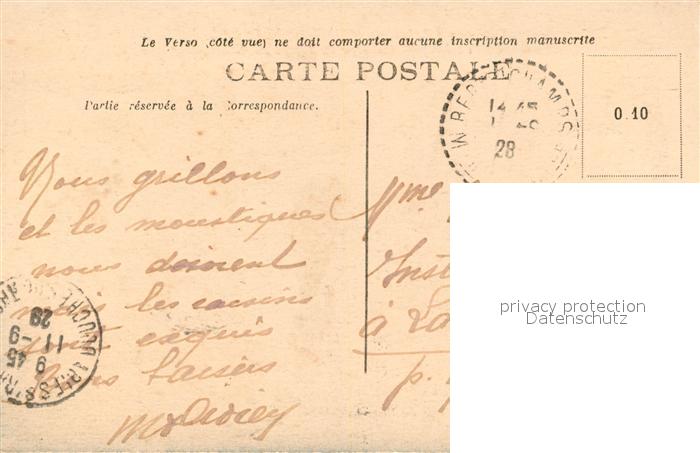 Le Verso (côté vue) ne doit comporter aucune inscription manuscrite
CARTE POSTALE
Partie réservée à la Correspondance.
0.10
28
Nous grillons
et les moustiques
nous dévorent
mais les raisins
sont exquis
Bons baisers
Mme
Inst
à La
p.
11 -9
29
9
45
privacy protection
Datenschutz